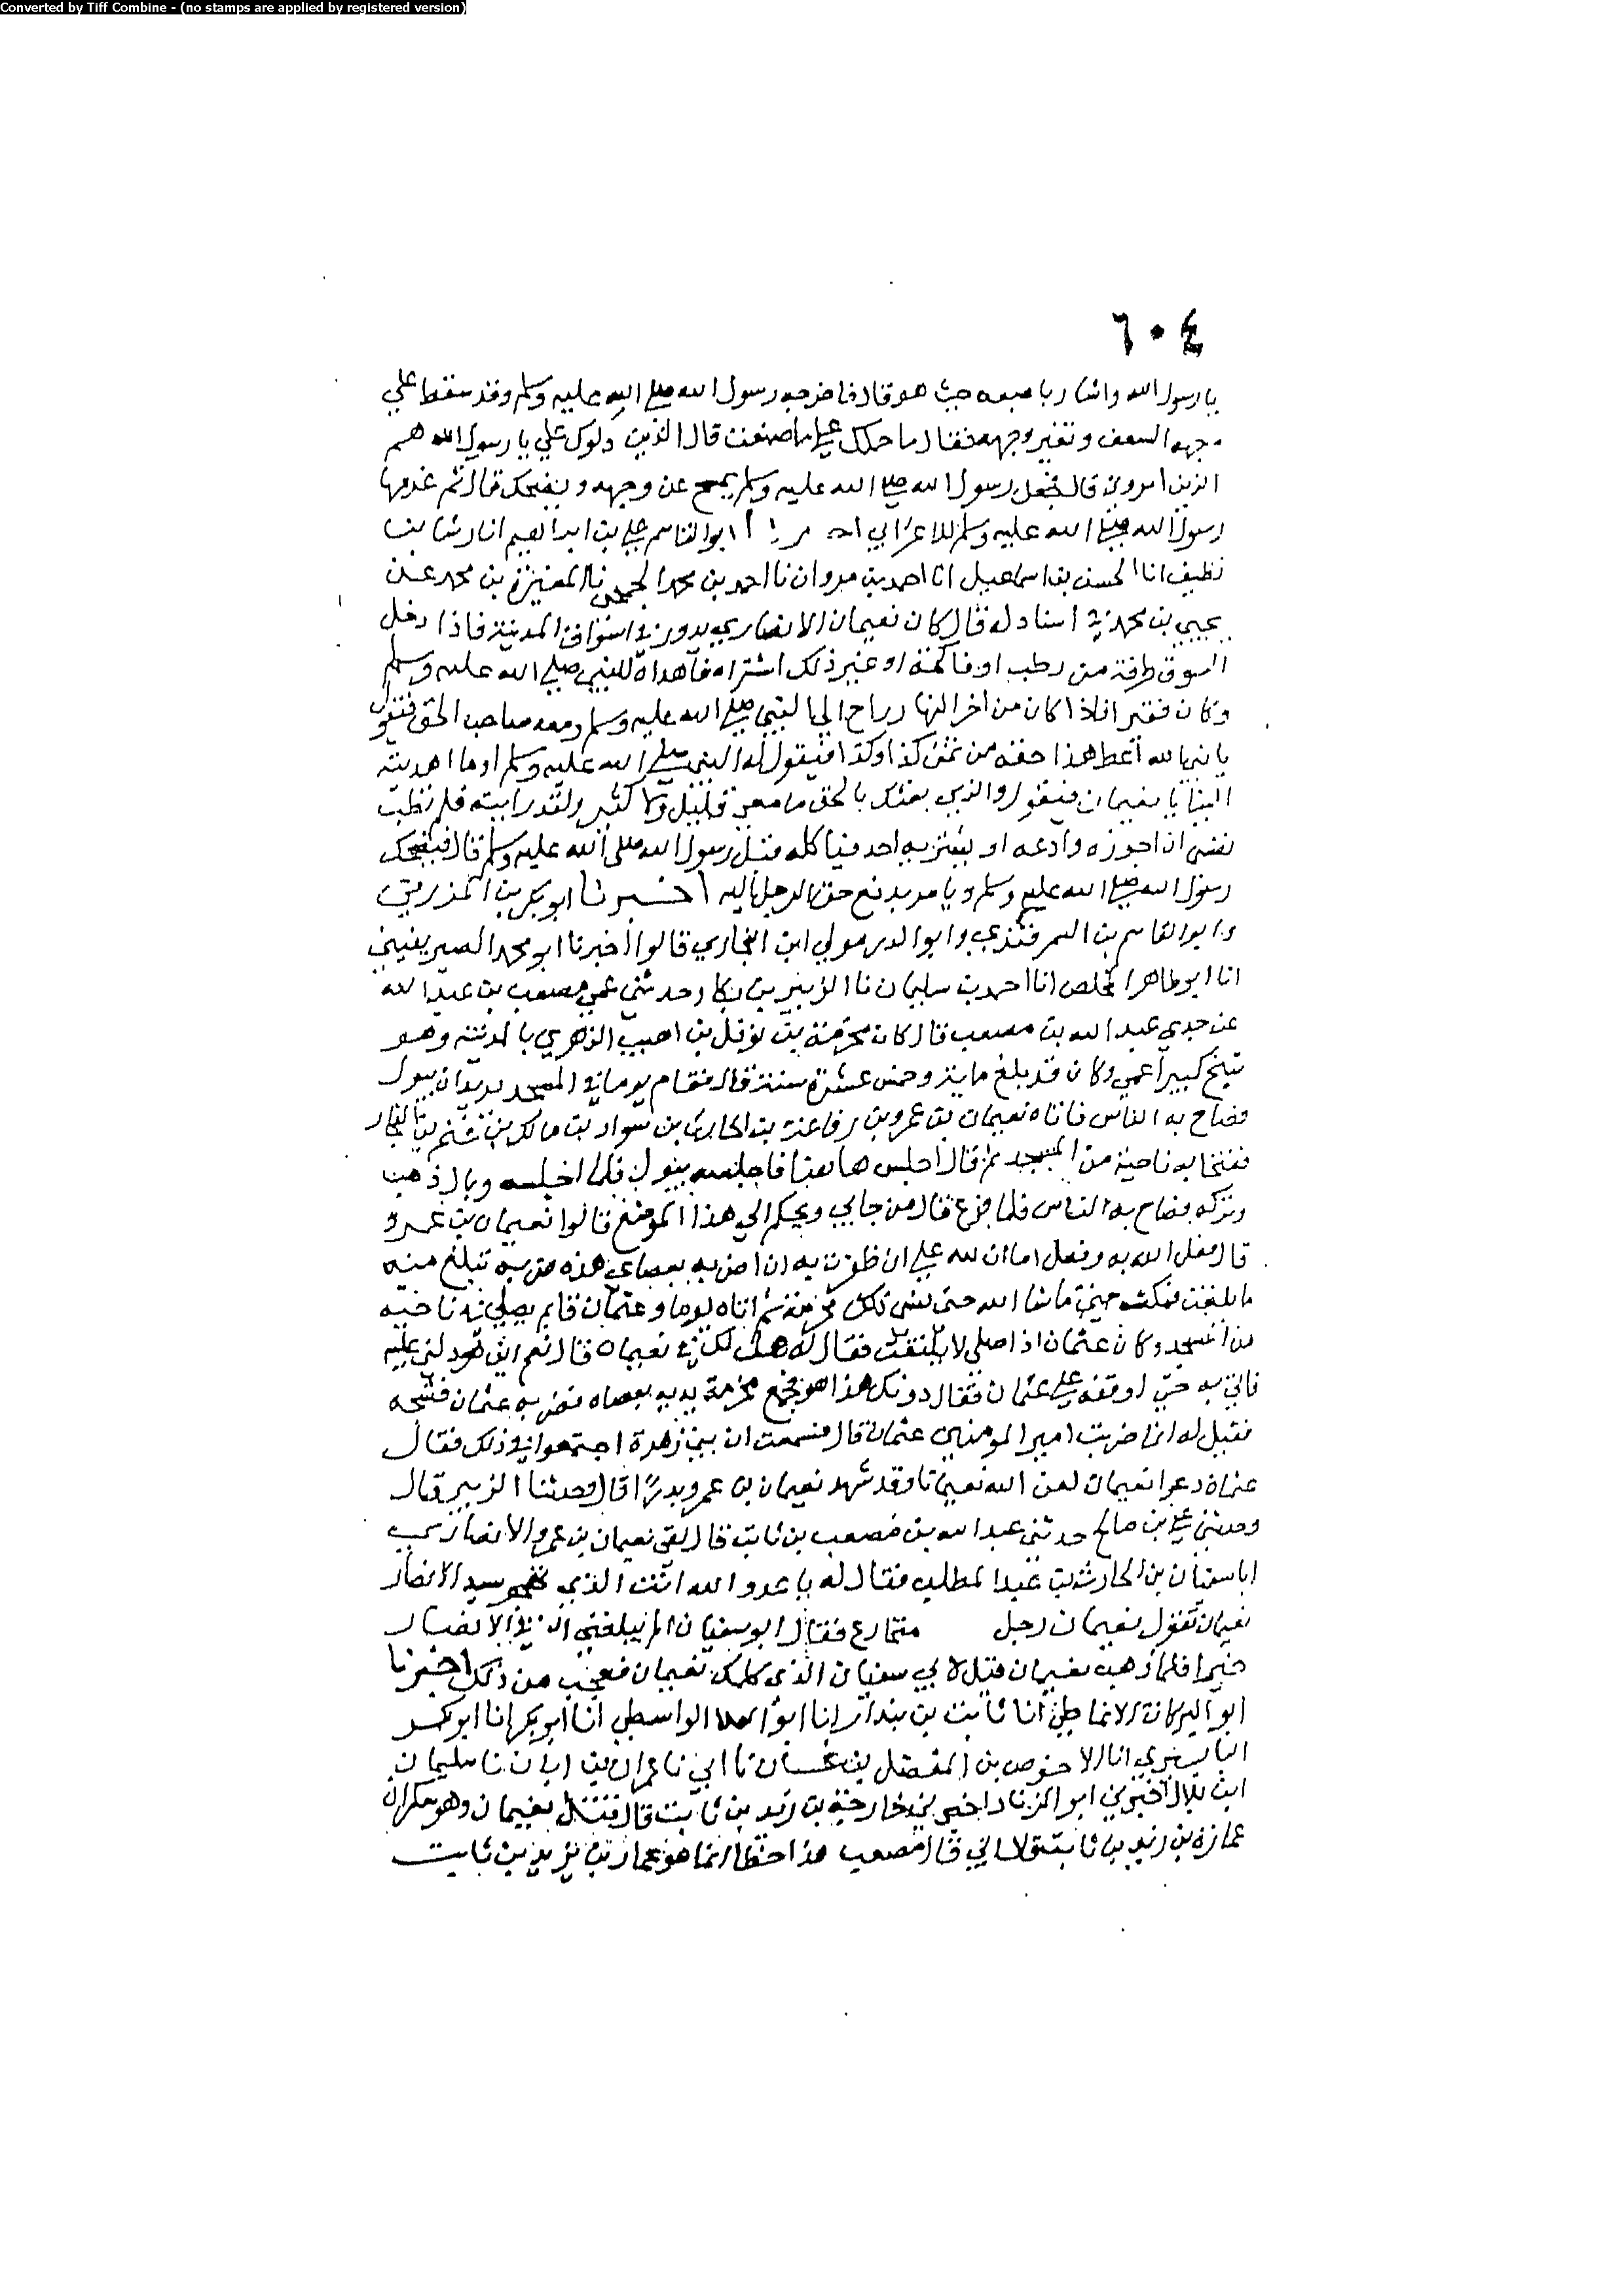 Converted by Tiff Combine - (no stamps are applied by registered version)
٦٠٤
يا رسول الله واشار باصبعه حيث هو قال فاخرجه رسول الله صلى الله عليه وسلم وقد سقط علي
وجهه السعف وتغير وجهه فقال ما حملك على ما صنعت قال الذين دلوك علي يا رسول الله هم
الذين امروني قال فجعل رسول الله صلى الله عليه وسلم يمسح عن وجهه ويضحك قال ثم غرمها
رسول الله صلى الله عليه وسلم للاعرابي ابو القاسم علي بن ابراهيم انا رشا بن
نظيف انا الحسن بن اسماعيل انا احمد بن مروان نا احمد بن محمد الجمحي نا المغيرة بن محمد عن
يحيي بن محمد في اسناد له قال كان نعيمان الانصاري يدور في اسواق المدينة فاذا دخل
السوق طرفة من رطب او فاكهة او غير ذلك اشتراه فاهداه للنبي صلى الله عليه وسلم
وكان فقيرا فاذا كان من اخر النهار راح الي النبي صلى الله عليه وسلم ومعه صاحب الحق فيقول
يا نبي الله اعط هذا حقه من ثمن كذا وكذا فيقول له النبي صلى الله عليه وسلم اوما اهديته
الينا يا نعيمان فيقول والذي بعثك بالحق ما معي قليل ولا كثير ولقد رايته فلم تطب
نفسي ان اجوزه وادعه او يشتريه احد فياكله قبل رسول الله صلى الله عليه وسلم قال فيضحك
رسول الله صلى الله عليه وسلم ويامر بدفع حق الرجل اليه اخبرنا ابو بكر بن المزرقي
وابو القاسم بن السمرقندي وابو الدر مولي ابن البخاري قالوا اخبرنا ابو محمد الصيريفيني
انا ابو طاهر المخلص انا احمد بن سليمان نا الزبير بن بكار حدثني عمي مصعب بن عبد الله
عن جدي عبد الله بن مصعب قال كان مخرمة بن نوفل بن اهيب الزهري بالمدينة وهو
شيخ كبير اعمي وكان قد بلغ ماية وخمس عشرة سنة قال فقام يوما في المسجد يريد ان يبول
فصاح به الناس فاتاه نعيمان بن عمرو بن رفاعة بن الحارث بن سواد بن مالك بن غنم بن النجار
فتنحا به ناحية من المسجد ثم قال اجلس هاهنا فاجلسه يبول فلما اجلسه وبال ذهب
وتركه فصاح به الناس فلما فرغ قال من جابي ويحكم الي هذا الموضع قالوا نعيمان بن عمرو
قال فعل الله به وفعل اما ان لله علي ان ظفرت به ان اضربه بعصاي هذه ضربة تبلغ منه
ما بلغت فمكث حتي ما شا الله حتي نسي ذلك مخرمة ثم اتاه يوما وعثمان قايم يصلي في ناحية
من المسجد وكان عثمان اذا صلي لا يلتفت فقال له هل لك في نعيمان قال نعم اين هو دلني عليه
فاتي به حتي اوقفه علي عثمان فقال دونك هذا هو فجمع مخرمة يديه بعصاه فضرب عثمان فشجه
فقيل له انما ضربت امير المومنين عثمان قال فسمعت ان بني زهرة اجتمعوا في ذلك فقال
عثمان دعوا نعيمان لعن الله نعيمانا وقد شهد نعيمان بن عمرو بدرا قال وحدثنا الزبير قال
وحدثني علي بن صالح حدثني عبد الله بن مصعب بن ثابت قال لقي نعيمان بن عمرو الانصاري
ابا سفيان بن الحارث بن عبد المطلب فقال له يا عدو الله انت الذي تهجو سيد الانصار
نعيمان تقول نعيمان رجل فقال ابو سفيان الم يبلغني ان في الانصار
خيرا فلما ذهب نعيمان قيل لابي سفيان الذي كلمك نعيمان فعجب من ذلك اخبرنا
ابو البركات الانماطي انا ثابت بن بندار انا ابو العلا الواسطي انا ابو بكر انا ابو بكر
البابسيري انا الاحوص بن المفضل بن غسان نا ابي نا عمران بن ابان نا سليمان
ابن بلال اخبرني ابو الزناد اخبرني خارجة بن زيد بن ثابت قال قتل نعيمان وهو سكران
عمارة بن زيد بن ثابت قال ابي قال مصعب هذا خطا انما هو عمارة بن يزيد بن ثابت